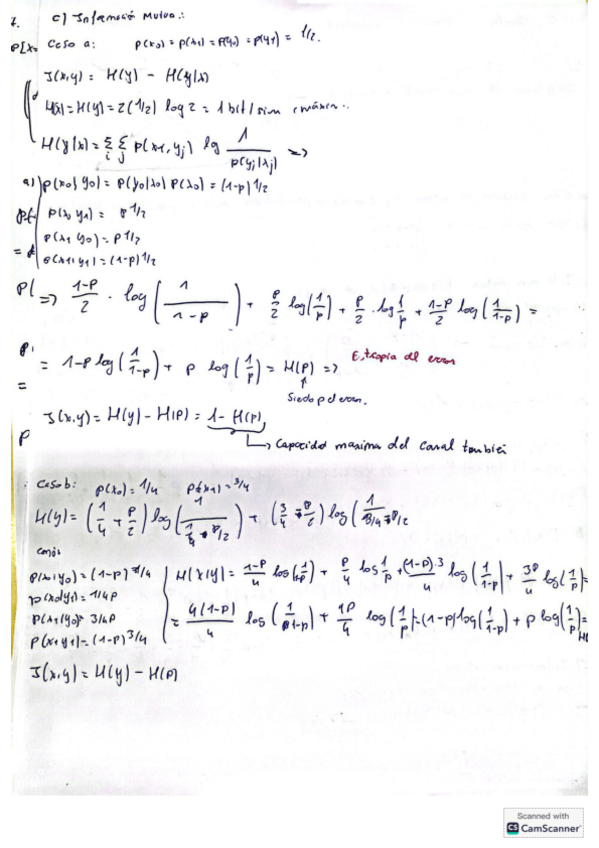 7. c) Información Mutua.:
P[x= Caso a: p(x0) = p(x1) = p(y0) = p(y1) = 1/2.
I(x,y) = H(y) - H(y|x)
H(x) = H(y) = 2(1/2) log 2 = 1 bit/sim (máxim..
H(y|x) = Σi Σj p(xi, yj) log 1/p(yj|xi) =>
a) p(x0, y0) = p(y0|x0) p(x0) = (1-p) 1/2
p(x0 y1) = p 1/2
p(x1 y0) = p 1/2
p(x1, y1) = (1-p) 1/2
P( => 1-p/2 · log(1/1-p) + p/2 log(1/p) + p/2 · log 1/p + 1-p/2 log(1/1-p) =
= 1-p log(1/1-p) + p log(1/p) = H(p) => Entropia del error
Siendo p el error.
I(x,y) = H(y) - H(p) = 1 - H(p),
Capacidad maxima del canal también
Caso b: p(x0) = 1/4 p(x1) = 3/4
H(y) = (1/4 + p/2) log(1/1/4 + p/2) + (3/4 - p/2) log(1/3/4 - p/2
p(x0, y0) = (1-p) 1/4
p(x0 y1) = 1/4 p
p(x1 y0) = 3/4 p
p(x1 y1) = (1-p) 3/4
H(x|y) = 1-p/4 log(1/1-p) + p/4 log 1/p + (1-p)·3/4 log(1/1-p) + 3p/4 log(1/p) =
= 4(1-p)/4 log(1/1-p) + 4p/4 log(1/p) = (1-p) log(1/1-p) + p log(1/p) =
I(x,y) = H(y) - H(p)
Scanned with
CS CamScanner